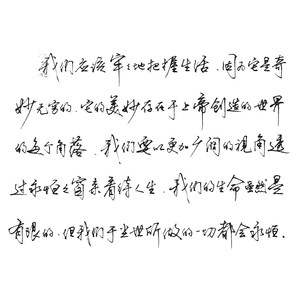 我们应该牢牢地把握生活，因为它是奇
妙无穷的，它的美妙存在于上帝创造的世界
的每个角落，我们要以更加广阔的视角透
过永恒之窗来看待人生，我们的生命虽然是
有限的，但我们于尘世所做的一切都会永恒．